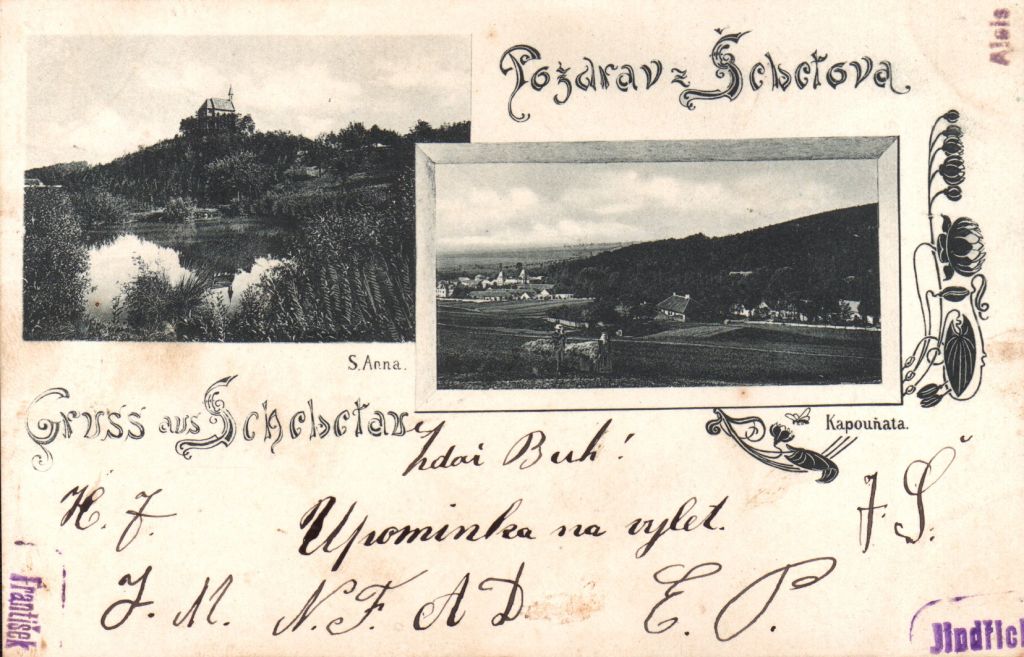 Alois
Pozdrav z Šebetova
S. Anna.
Gruss aus Schebetau
Kapouňata.
Zdař Bůh!
H. J.
Upomínka na výlet.
J. Š.
J. M. N. F. A D. E. P.
František
Jindřich